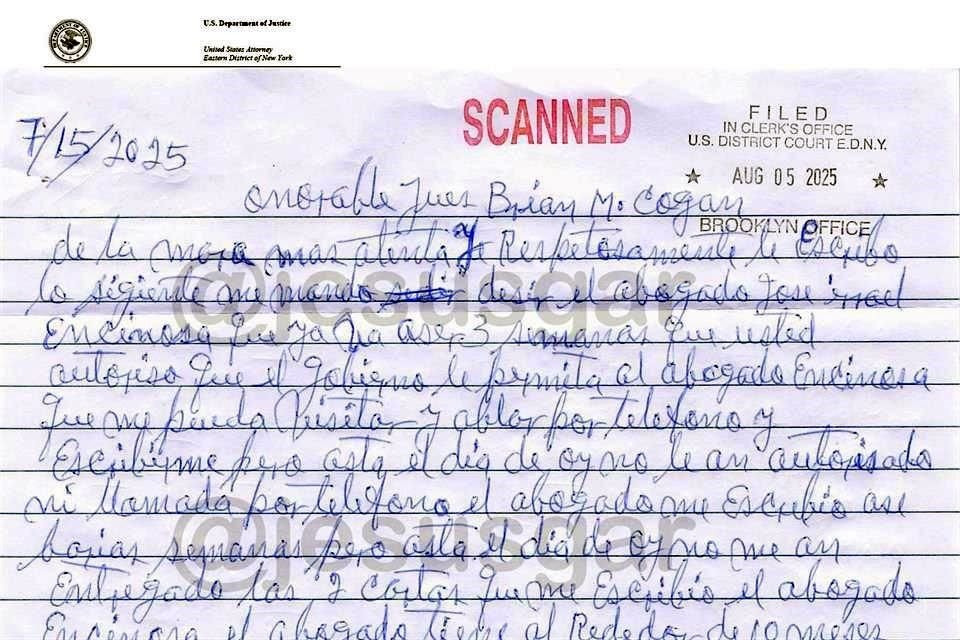 U.S. Department of Justice
United States Attorney
Eastern District of New York
SCANNED
FILED
IN CLERK'S OFFICE
U.S. DISTRICT COURT E.D.N.Y.
★ AUG 05 2025 ★
BROOKLYN OFFICE
7/15/2025
onorable Jues Brian M. Cogan
de la mara mas atenta y Respetosamente le Escribo
lo sigiente me mando desir el abogado Jose
Encinosa que ya ba aser 3 semanas que usted
autoriso que el gobierno le permita al abogado Encinosa
que me pueda Visitar y ablar por telefono y
Escribirme pero asta el dia de oy no le an autorisado
ni llamada por telefono el abogado me Escribio ase
barias semanas pero asta el dia de oy no me an
Entregado las 2 cartas que me Escribio el abogado
Encinosa el abogado tiene al Rededor de 10 meses
@jesusgar
@jesusgar